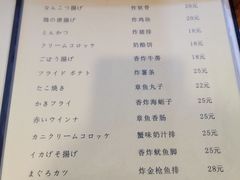 なんこつ揚げ 炸软骨 20元
鶏の唐揚げ 炸鸡块 20元
とんかつ 炸猪排 18元
クリームコロッケ 奶酪饼 18元
ごぼう揚げ 香炸牛蒡 18元
フライド ポテト 炸薯条 18元
たこ焼き 章鱼丸子 22元
かきフライ 香炸海蛎子 25元
赤いウインナ 章鱼香肠 25元
カニクリームコロッケ 蟹味奶汁排 25元
イカげそ揚げ 香炸鱿鱼脚 25元
まぐろカツ 炸金枪鱼排 28元